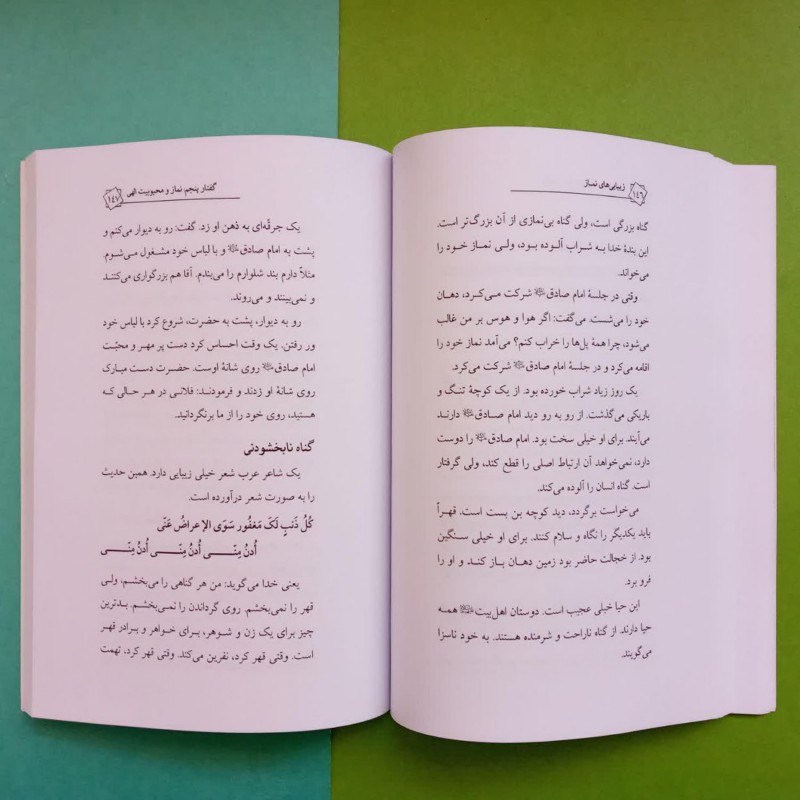 زیبایی‌های نماز
۱۴۶
گناه بزرگی است، ولی گناه بی‌نمازی از آن بزرگ‌تر است.
این بندهٔ خدا به شراب آلوده بود، ولی نماز خود را
می‌خواند.
وقتی در جلسهٔ امام صادق شرکت می‌کرد، دهان
خود را می‌شست. می‌گفت: اگر هوا و هوس بر من غالب
می‌شود، چرا همهٔ پل‌ها را خراب کنم؟ می‌آمد نماز خود را
اقامه می‌کرد و در جلسهٔ امام صادق شرکت می‌کرد.
یک روز زیاد شراب خورده بود. از یک کوچهٔ تنگ و
باریکی می‌گذشت. از رو به رو دید امام صادق دارند
می‌آیند. برای او خیلی سخت بود. امام صادق را دوست
دارد، نمی‌خواهد آن ارتباط اصلی را قطع کند، ولی گرفتار
است. گناه انسان را آلوده می‌کند.
می‌خواست برگردد، دید کوچه بن بست است. قهراً
باید یکدیگر را نگاه و سلام کنند. برای او خیلی سنگین
بود. از خجالت حاضر بود زمین دهان باز کند و او را
فرو برد.
این حیا خیلی عجیب است. دوستان اهل‌بیت همه
حیا دارند از گناه ناراحت و شرمنده هستند. به خود ناسزا
می‌گویند.
گفتار پنجم: نماز و محبوبیت الهی
۱۴۷
یک جرقّه‌ای به ذهن او زد. گفت: رو به دیوار می‌کنم و
پشت به امام صادق و با لباس خود مشغول می‌شوم.
مثلاً دارم بند شلوارم را می‌بندم. آقا هم بزرگواری می‌کنند
و نمی‌بینند و می‌روند.
رو به دیوار، پشت به حضرت، شروع کرد با لباس خود
ور رفتن. یک وقت احساس کرد دست پر مهر و محبّت
امام صادق روی شانهٔ اوست. حضرت دست مبارک
روی شانهٔ او زدند و فرمودند: فلانی در هر حالی که
هستید، روی خود را از ما برنگردانید.
گناه نابخشودنی
یک شاعر عرب شعر خیلی زیبایی دارد. همین حدیث
را به صورت شعر درآورده است.
کُلُّ ذَنبٍ لَکَ مَغفُور سَوَی الإعراضُ عَنّی
أُدنُ مِنّـــی أُدنُ مِنّـــی أُدنُ مِنّـــی
یعنی خدا می‌گوید: من هر گناهی را می‌بخشم، ولی
قهر را نمی‌بخشم. روی گرداندن را نمی‌بخشم. بدترین
چیز برای یک زن و شوهر، برای خواهر و برادر قهر
است. وقتی قهر کرد، نفرین می‌کند. وقتی قهر کرد، تهمت